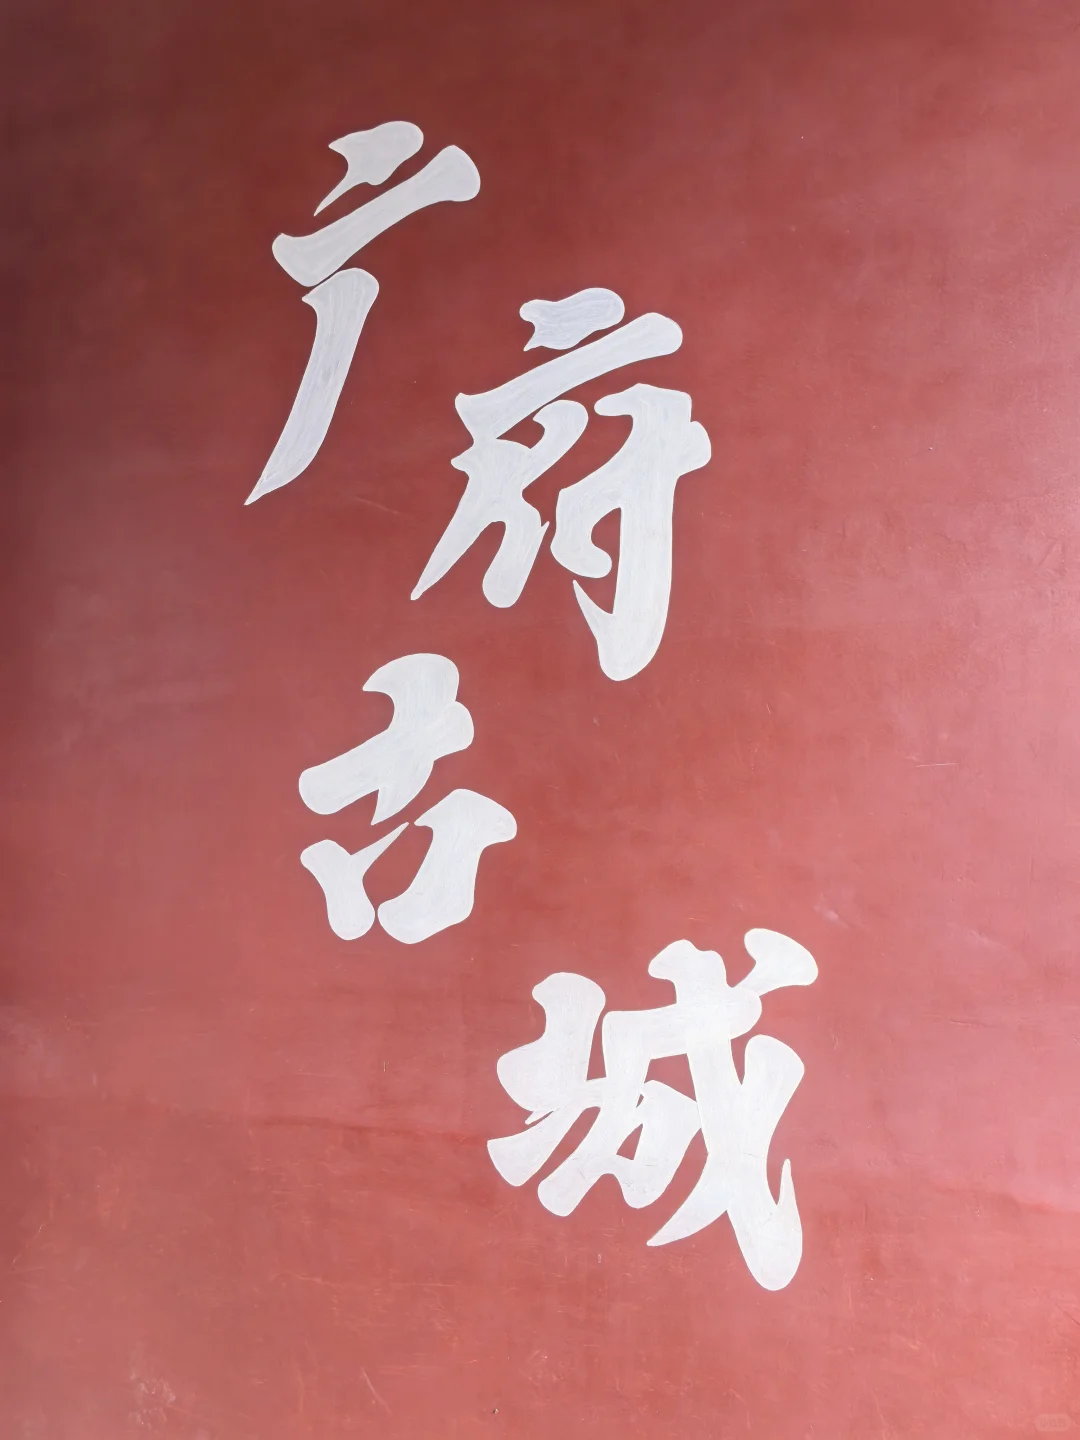 广府古城